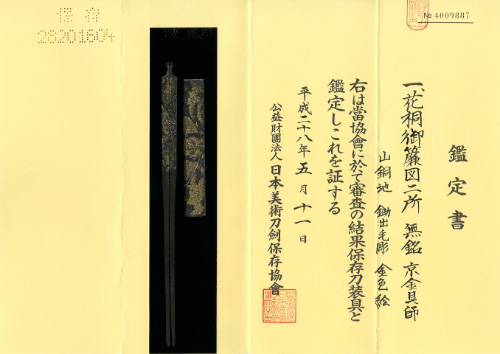 保存
28201604
№ 4009887
鑑定書
一、花桐御簾図二所 無銘 京金具師
山銅地 鋤出毛彫 金色絵
右は當協會に於て審査の結果保存刀装具と
鑑定しこれを証する
平成二十八年五月十一日
公益財團法人 日本美術刀劍保存協會